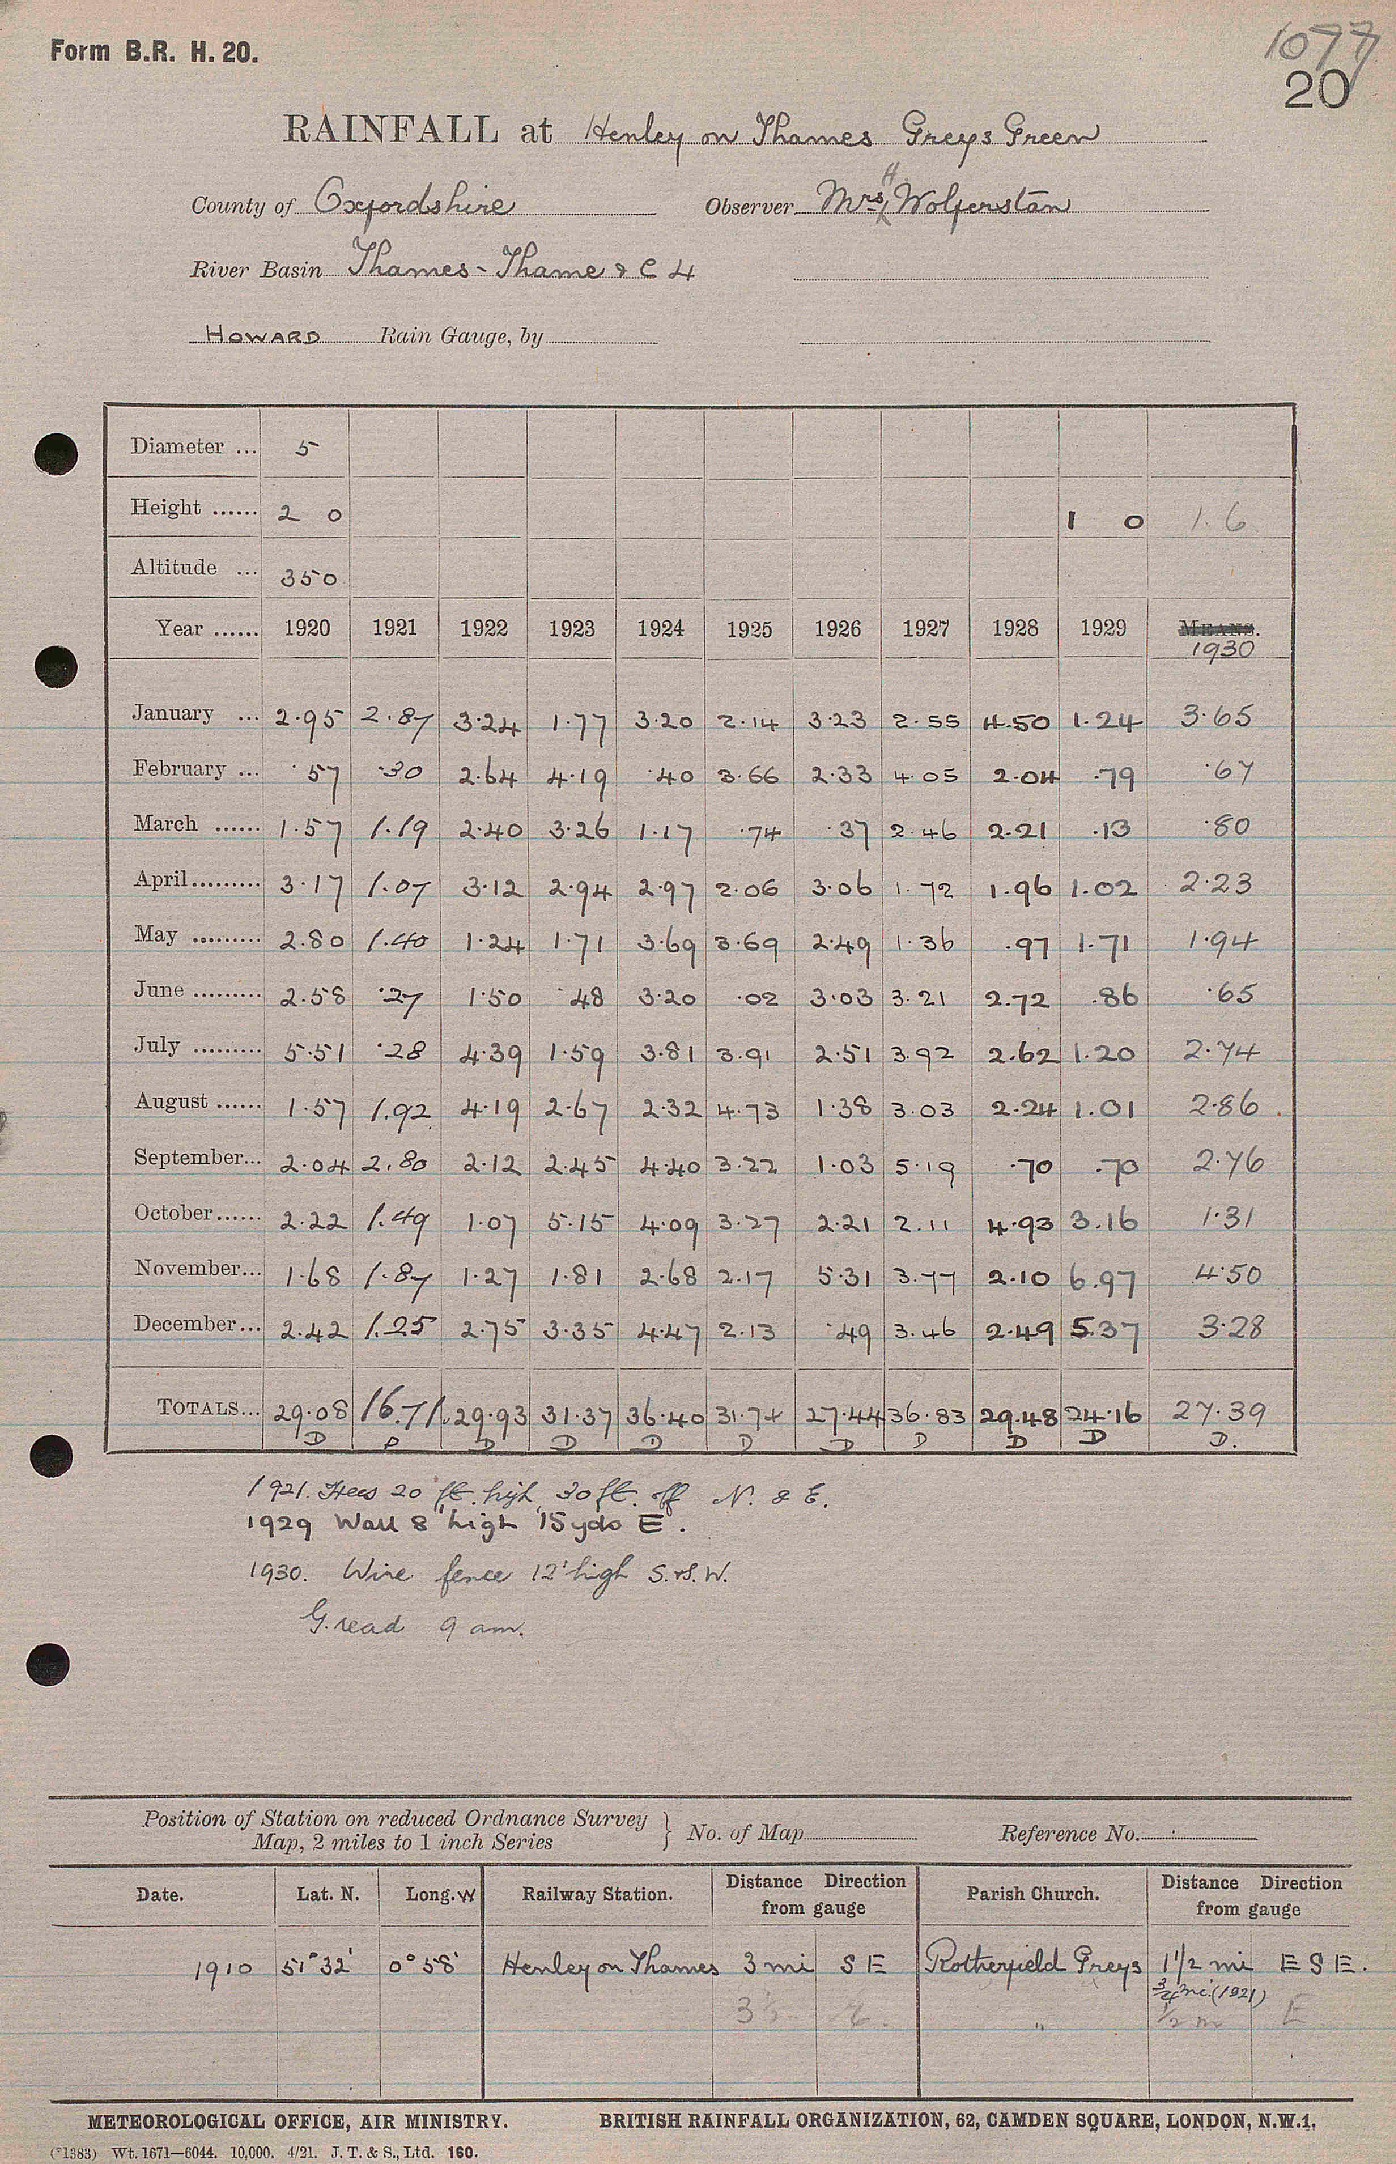 Form B.R. H. 20.
1077
20
RAINFALL at Henley on Thames Greys Green
County of Oxfordshire Observer Mrs H Wolferstan
River Basin Thames - Thame & C 4
HOWARD Rain Gauge, by
Diameter ... 5
Height ...... 2 0 1 0 1.6
Altitude ... 350
Year ...... 1920 1921 1922 1923 1924 1925 1926 1927 1928 1929 MEANS.
1930
January ... 2.95 2.87 3.24 1.77 3.20 2.14 3.23 2.55 4.50 1.24 3.65
February ... .57 .30 2.64 4.19 .40 3.66 2.33 4.05 2.04 .79 .67
March ...... 1.57 1.19 2.40 3.26 1.17 .74 .37 2.46 2.21 .13 .80
April......... 3.17 1.07 3.12 2.94 2.97 2.06 3.06 1.72 1.96 1.02 2.23
May ......... 2.80 1.40 1.24 1.71 3.69 3.69 2.49 1.36 .97 1.71 1.94
June ......... 2.58 .27 1.50 .48 3.20 .02 3.03 3.21 2.72 .86 .65
July ......... 5.51 .28 4.39 1.59 3.81 3.91 2.51 3.92 2.62 1.20 2.74
August ...... 1.57 1.92 4.19 2.67 2.32 4.73 1.38 3.03 2.24 1.01 2.86
September... 2.04 2.80 2.12 2.45 4.40 3.22 1.03 5.19 .70 .70 2.76
October...... 2.22 1.49 1.07 5.15 4.09 3.27 2.21 2.11 4.93 3.16 1.31
November... 1.68 1.87 1.27 1.81 2.68 2.17 5.31 3.77 2.10 6.97 4.50
December... 2.42 1.25 2.75 3.35 4.47 2.13 .49 3.46 2.49 5.37 3.28
TOTALS... 29.08 16.71 29.93 31.37 36.40 31.74 27.44 36.83 29.48 24.16 27.39
D D D D D D D D D D D.
1921. Trees 20 ft. high, 30 ft. off N. & E.
1929 Wall 8' high 15 yds E.
1930. Wire fence 12' high S. & S.W.
G. read 9 am.
Position of Station on reduced Ordnance Survey
Map, 2 miles to 1 inch Series } No. of Map Reference No.
Date. Lat. N. Long. W Railway Station. Distance from gauge Direction Parish Church. Distance from gauge Direction
1910 51° 32' 0° 58' Henley on Thames 3 mi S E Rotherfield Greys 1 1/2 mi E S E.
3/4 mi. (1921)
3 1/2 E. " 1/2 m E
METEOROLOGICAL OFFICE, AIR MINISTRY. BRITISH RAINFALL ORGANIZATION, 62, CAMDEN SQUARE, LONDON, N.W.1.
(*1383) Wt. 1671—6044. 10,000. 4/21. J. T. & S., Ltd. 160.